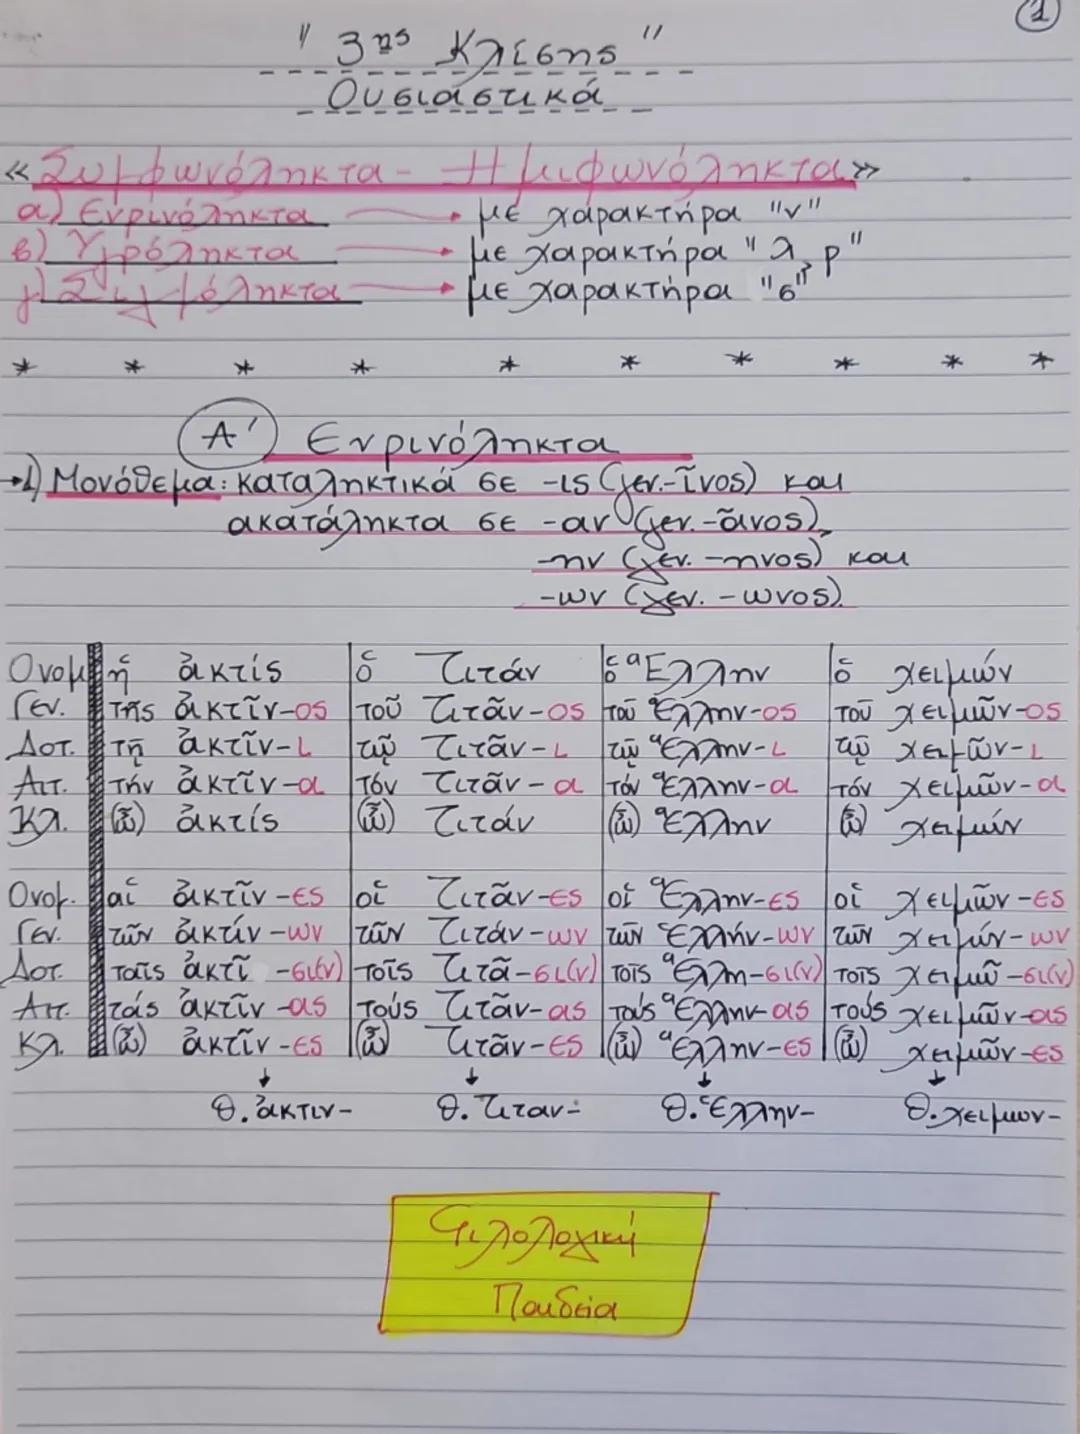 1
"3ης Κλίσης"
Ουσιαστικά
«Συμφωνόληκτα - Ημιφωνόληκτα»
α) Ενρινόληκτα → με χαρακτήρα "ν"
β) Υγρόληκτα → με χαρακτήρα "λ, ρ"
γ) Σιγμόληκτα → με χαρακτήρα "σ"
* * * * * * * * * *
Α' Ενρινόληκτα
→1) Μονόθεμα: καταληκτικά σε -ις (γεν.-ῖνος) και
ακατάληκτα σε -αν (γεν.-ᾶνος),
-ην (γεν. -ηνος) και
-ων (γεν. -ωνος).
Ονομ. ἡ ἀκτίς ὁ Τιτάν ὁ Ἕλλην ὁ χειμών
Γεν. τῆς ἀκτῖν-ος τοῦ Τιτᾶν-ος τοῦ Ἕλλην-ος τοῦ χειμῶν-ος
Δοτ. τῇ ἀκτῖν-ι τῷ Τιτᾶν-ι τῷ Ἕλλην-ι τῷ χειμῶν-ι
Αιτ. τήν ἀκτῖν-α τόν Τιτᾶν-α τόν Ἕλλην-α τόν χειμῶν-α
Κλ. (ὦ) ἀκτίς (ὦ) Τιτάν (ὦ) Ἕλλην (ὦ) χειμών
Ονομ. αἱ ἀκτῖν-ες οἱ Τιτᾶν-ες οἱ Ἕλλην-ες οἱ χειμῶν-ες
Γεν. τῶν ἀκτίν-ων τῶν Τιτάν-ων τῶν Ἑλλήν-ων τῶν χειμών-ων
Δοτ. ταῖς ἀκτῖ-σι(ν) τοῖς Τιτᾶ-σι(ν) τοῖς Ἕλλη-σι(ν) τοῖς χειμῶ-σι(ν)
Αιτ. τάς ἀκτῖν-ας τούς Τιτᾶν-ας τούς Ἕλλην-ας τούς χειμῶν-ας
Κλ. (ὦ) ἀκτῖν-ες (ὦ) Τιτᾶν-ες (ὦ) Ἕλλην-ες (ὦ) χειμῶν-ες
Θ. ἀκτιν- Θ. Τιταν- Θ. Ἑλλην- Θ. χειμων-
Φιλολογική
Παιδεία